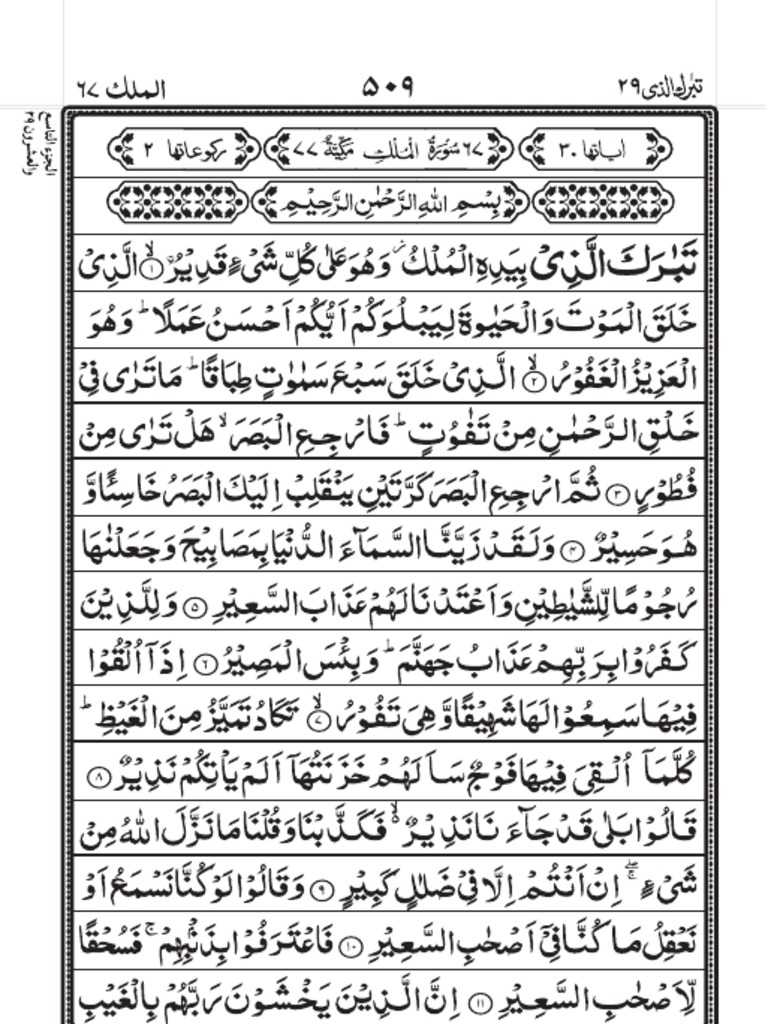 تبٰرك الذی ۲۹
۵۰۹
الملك ۶۷
الجزء التاسع والعشرون ۲۹
اٰیاتها ۳۰
۶۷ سُوْرَةُ الْمُلْكِ مَكِّيَّةٌ ۷۷
ركوعاتها ۲
بِسْمِ اللهِ الرَّحْمٰنِ الرَّحِيْمِ
تَبٰرَكَ الَّذِىْ بِيَدِهِ الْمُلْكُ ؗ وَهُوَ عَلٰى كُلِّ شَىْءٍ قَدِيْرُ ۙ﴿۱﴾ الَّذِىْ
خَلَقَ الْمَوْتَ وَالْحَيٰوةَ لِيَبْلُوَكُمْ اَيُّكُمْ اَحْسَنُ عَمَلًا ؕ وَهُوَ
الْعَزِيْزُ الْغَفُوْرُ ۙ﴿۲﴾ الَّذِىْ خَلَقَ سَبْعَ سَمٰوٰتٍ طِبَاقًا ؕ مَا تَرٰى فِىْ
خَلْقِ الرَّحْمٰنِ مِنْ تَفٰوُتٍ ؕ فَارْجِعِ الْبَصَرَ ۙ هَلْ تَرٰى مِنْ
فُطُوْرٍ ﴿۳﴾ ثُمَّ ارْجِعِ الْبَصَرَ كَرَّتَيْنِ يَنْقَلِبْ اِلَيْكَ الْبَصَرُ خَاسِئًا وَّ
هُوَ حَسِيْرٌ ﴿۴﴾ وَلَقَدْ زَيَّنَّا السَّمَآءَ الدُّنْيَا بِمَصَابِيْحَ وَجَعَلْنٰهَا
رُجُوْمًا لِّلشَّيٰطِيْنِ وَاَعْتَدْنَا لَهُمْ عَذَابَ السَّعِيْرِ ﴿۵﴾ وَلِلَّذِيْنَ
كَفَرُوْا بِرَبِّهِمْ عَذَابُ جَهَنَّمَ ؕ وَبِئْسَ الْمَصِيْرُ ﴿۶﴾ اِذَاۤ اُلْقُوْا
فِيْهَا سَمِعُوْا لَهَا شَهِيْقًا وَّهِىَ تَفُوْرُ ۙ﴿۷﴾ تَكَادُ تَمَيَّزُ مِنَ الْغَيْظِ ؕ
كُلَّمَاۤ اُلْقِىَ فِيْهَا فَوْجٌ سَاَلَهُمْ خَزَنَتُهَاۤ اَلَمْ يَاْتِكُمْ نَذِيْرٌ ﴿۸﴾
قَالُوْا بَلٰى قَدْ جَآءَنَا نَذِيْرٌ ۙ۬ فَكَذَّبْنَا وَقُلْنَا مَا نَزَّلَ اللهُ مِنْ
شَىْءٍ ۖۚ اِنْ اَنْتُمْ اِلَّا فِىْ ضَلٰلٍ كَبِيْرٍ ﴿۹﴾ وَقَالُوْا لَوْ كُنَّا نَسْمَعُ اَوْ
نَعْقِلُ مَا كُنَّا فِىْۤ اَصْحٰبِ السَّعِيْرِ ﴿۱۰﴾ فَاعْتَرَفُوْا بِذَنْۢبِهِمْ ۚ فَسُحْقًا
لِّاَصْحٰبِ السَّعِيْرِ ﴿۱۱﴾ اِنَّ الَّذِيْنَ يَخْشَوْنَ رَبَّهُمْ بِالْغَيْبِ